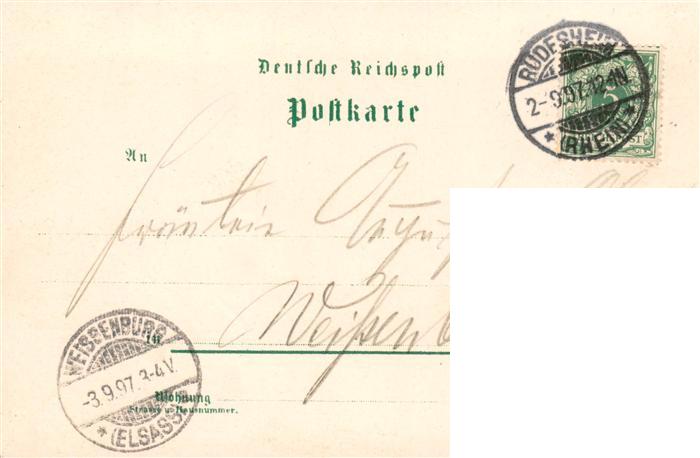 Deutsche Reichspost
Postkarte
RÜDESHEIM
2-9.97.12-1N
* (RHEIN) *
5
An
Fräulein
Weißenb
in
WEISSENBURG
-3.9.97.3-4V.
* (ELSASS)
Wohnung
(Strasse u. Hausnummer.